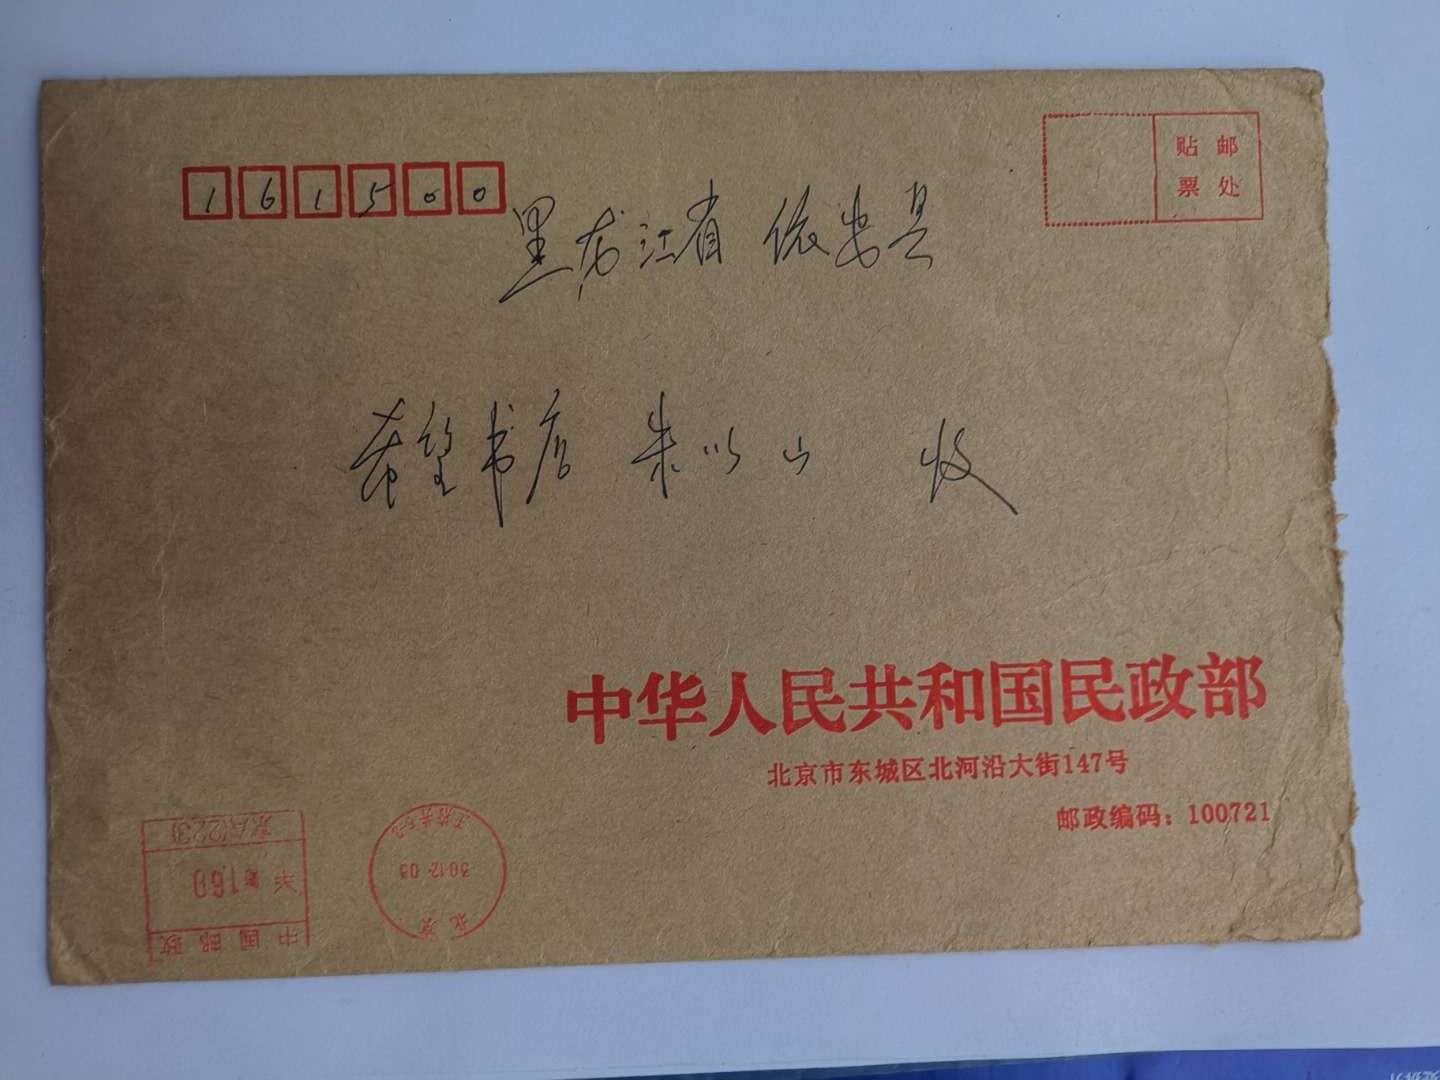 161500
贴邮
票处
黑龙江省 依安县
希望书店 朱以山 收
中华人民共和国民政部
北京市东城区北河沿大街147号
邮政编码：100721
京A(223)
160
中国邮政
北京